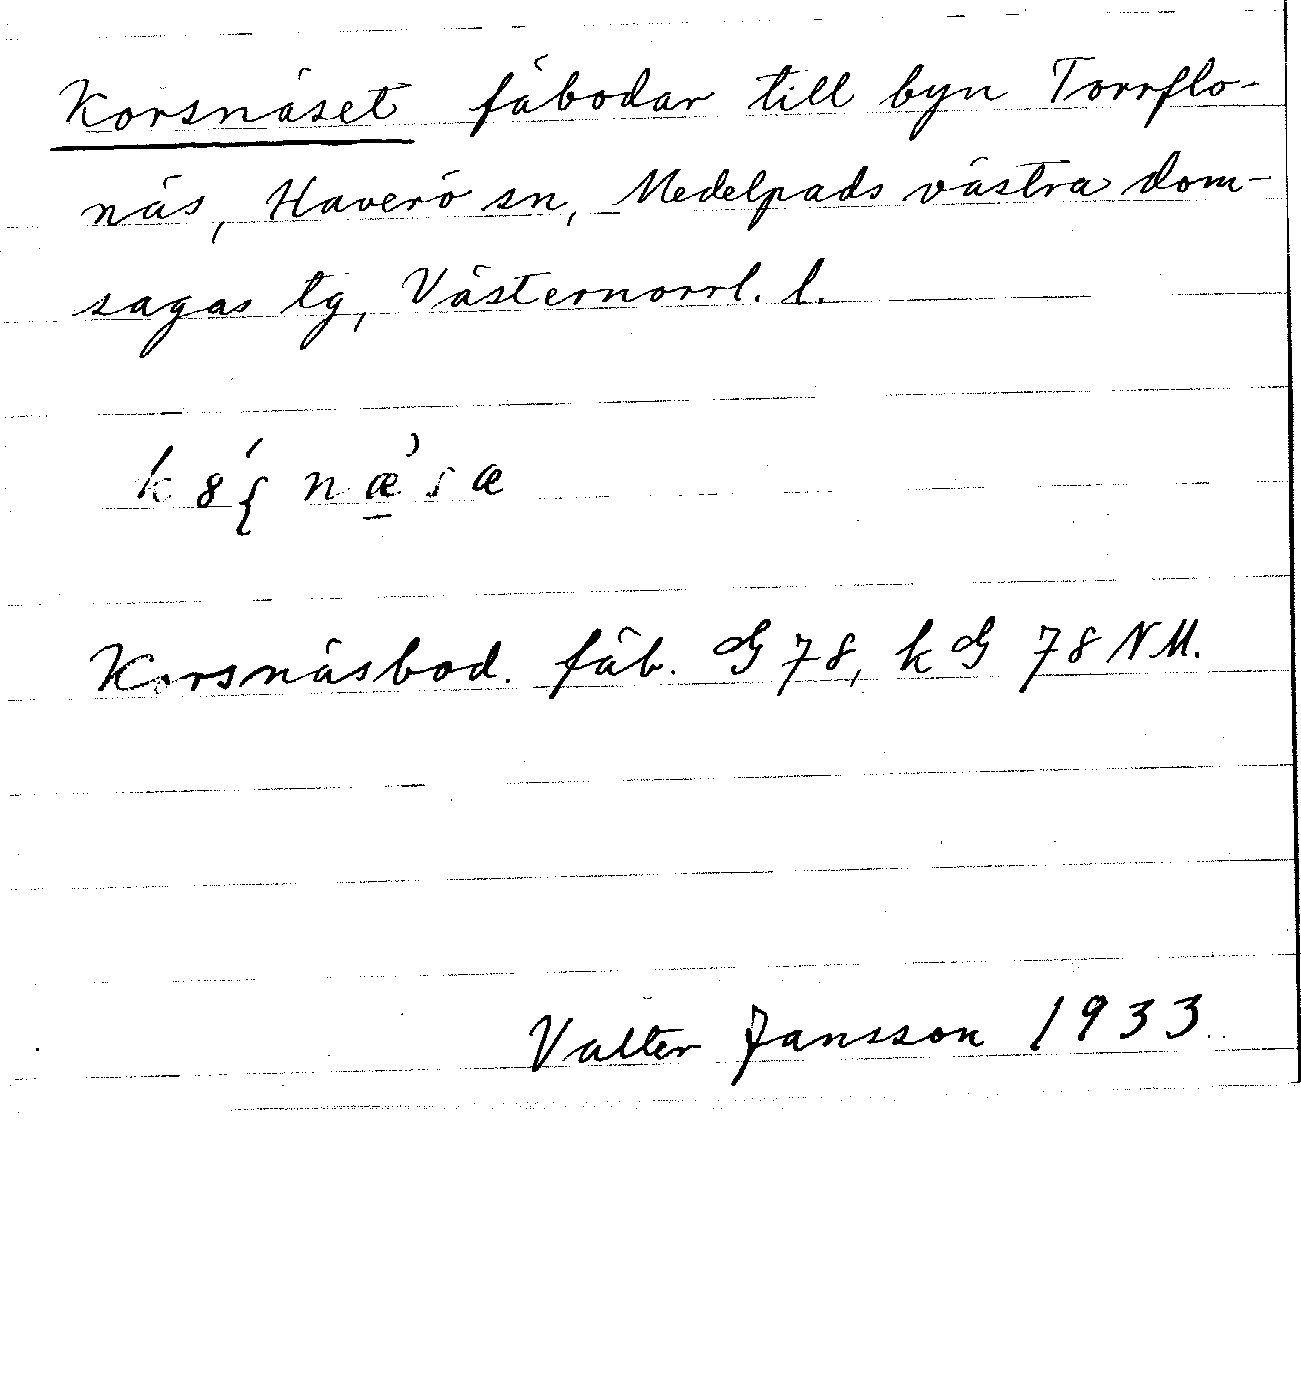 Korsnäset fäbodar till byn Torrflo-
näs, Haverö sn, Medelpads västra dom-
sagas tg, Västernorrl. l.
Korsnäsbod. fäb. G 78, k G 78 NM.
Valter Jansson 1933